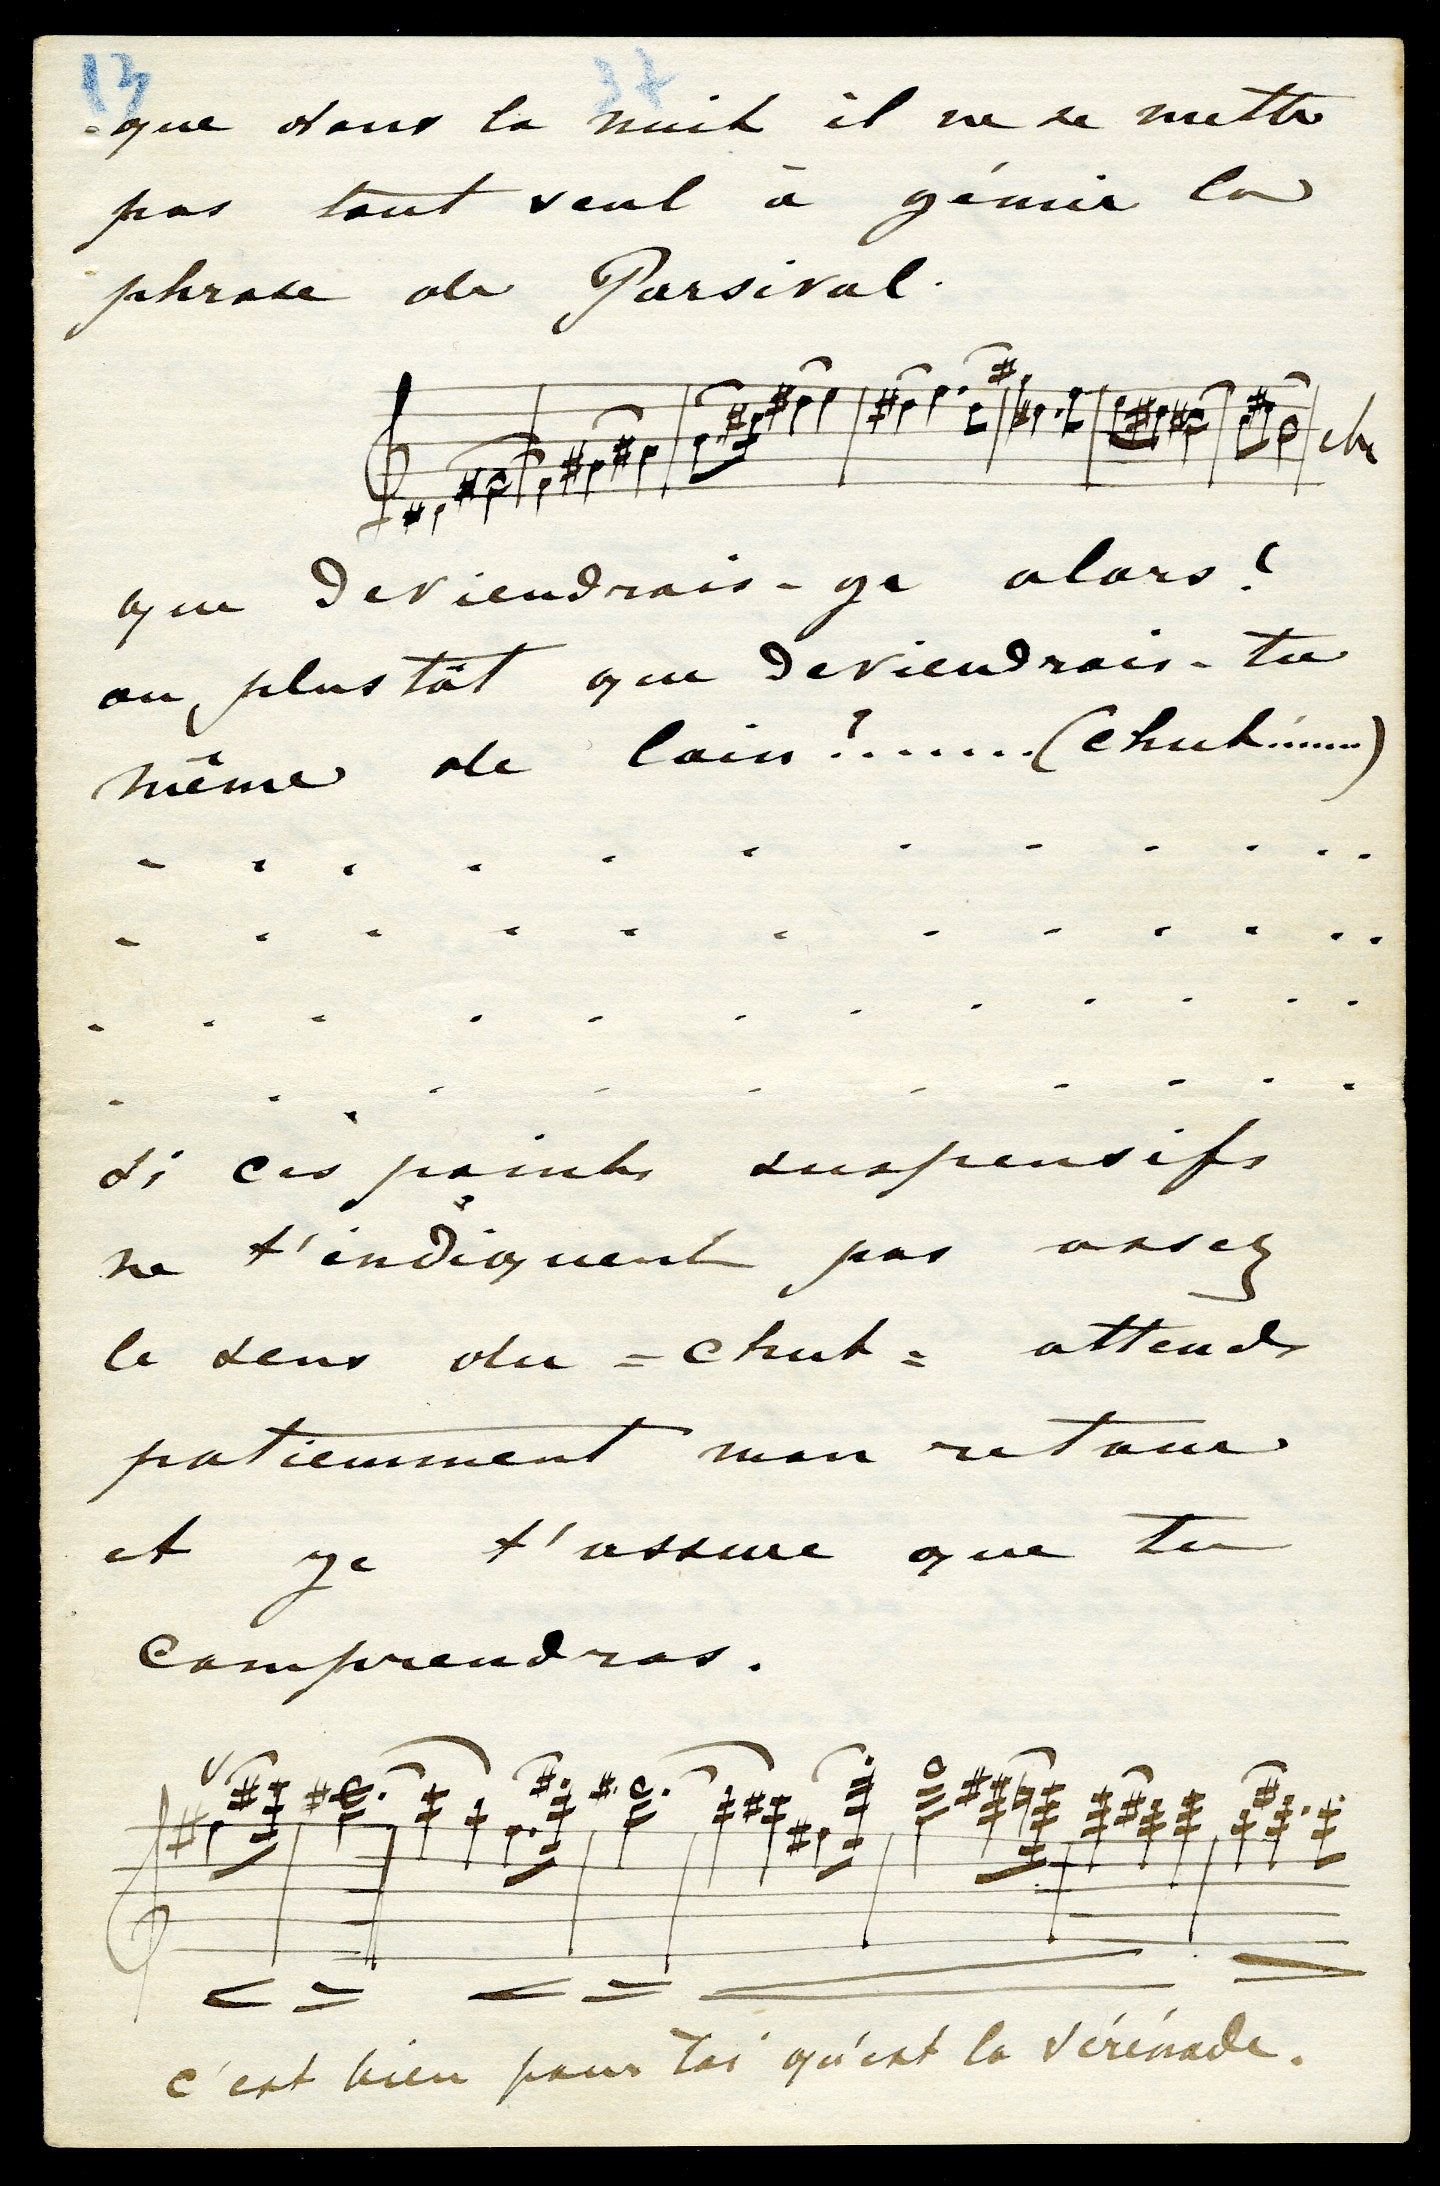 13 37
que dans la nuit il ne se mette
pas tout seul à gémir la
phrase de Parsival.
etc
que deviendrais-ge alors?
ou plustôt que deviendrais-tu
même de loin?.......(chut.......)
. . . . . . . . . . . .
. . . . . . . . . . . .
. . . . . . . . . . . .
. . . . . . . . . . .
si ces points suspensifs
ne t'indiquent pas assez
le sens du =chut= attends
patiemment mon retour
et ge t'assure que tu
comprendras.
c'est bien pour toi qu'est la sérénade.